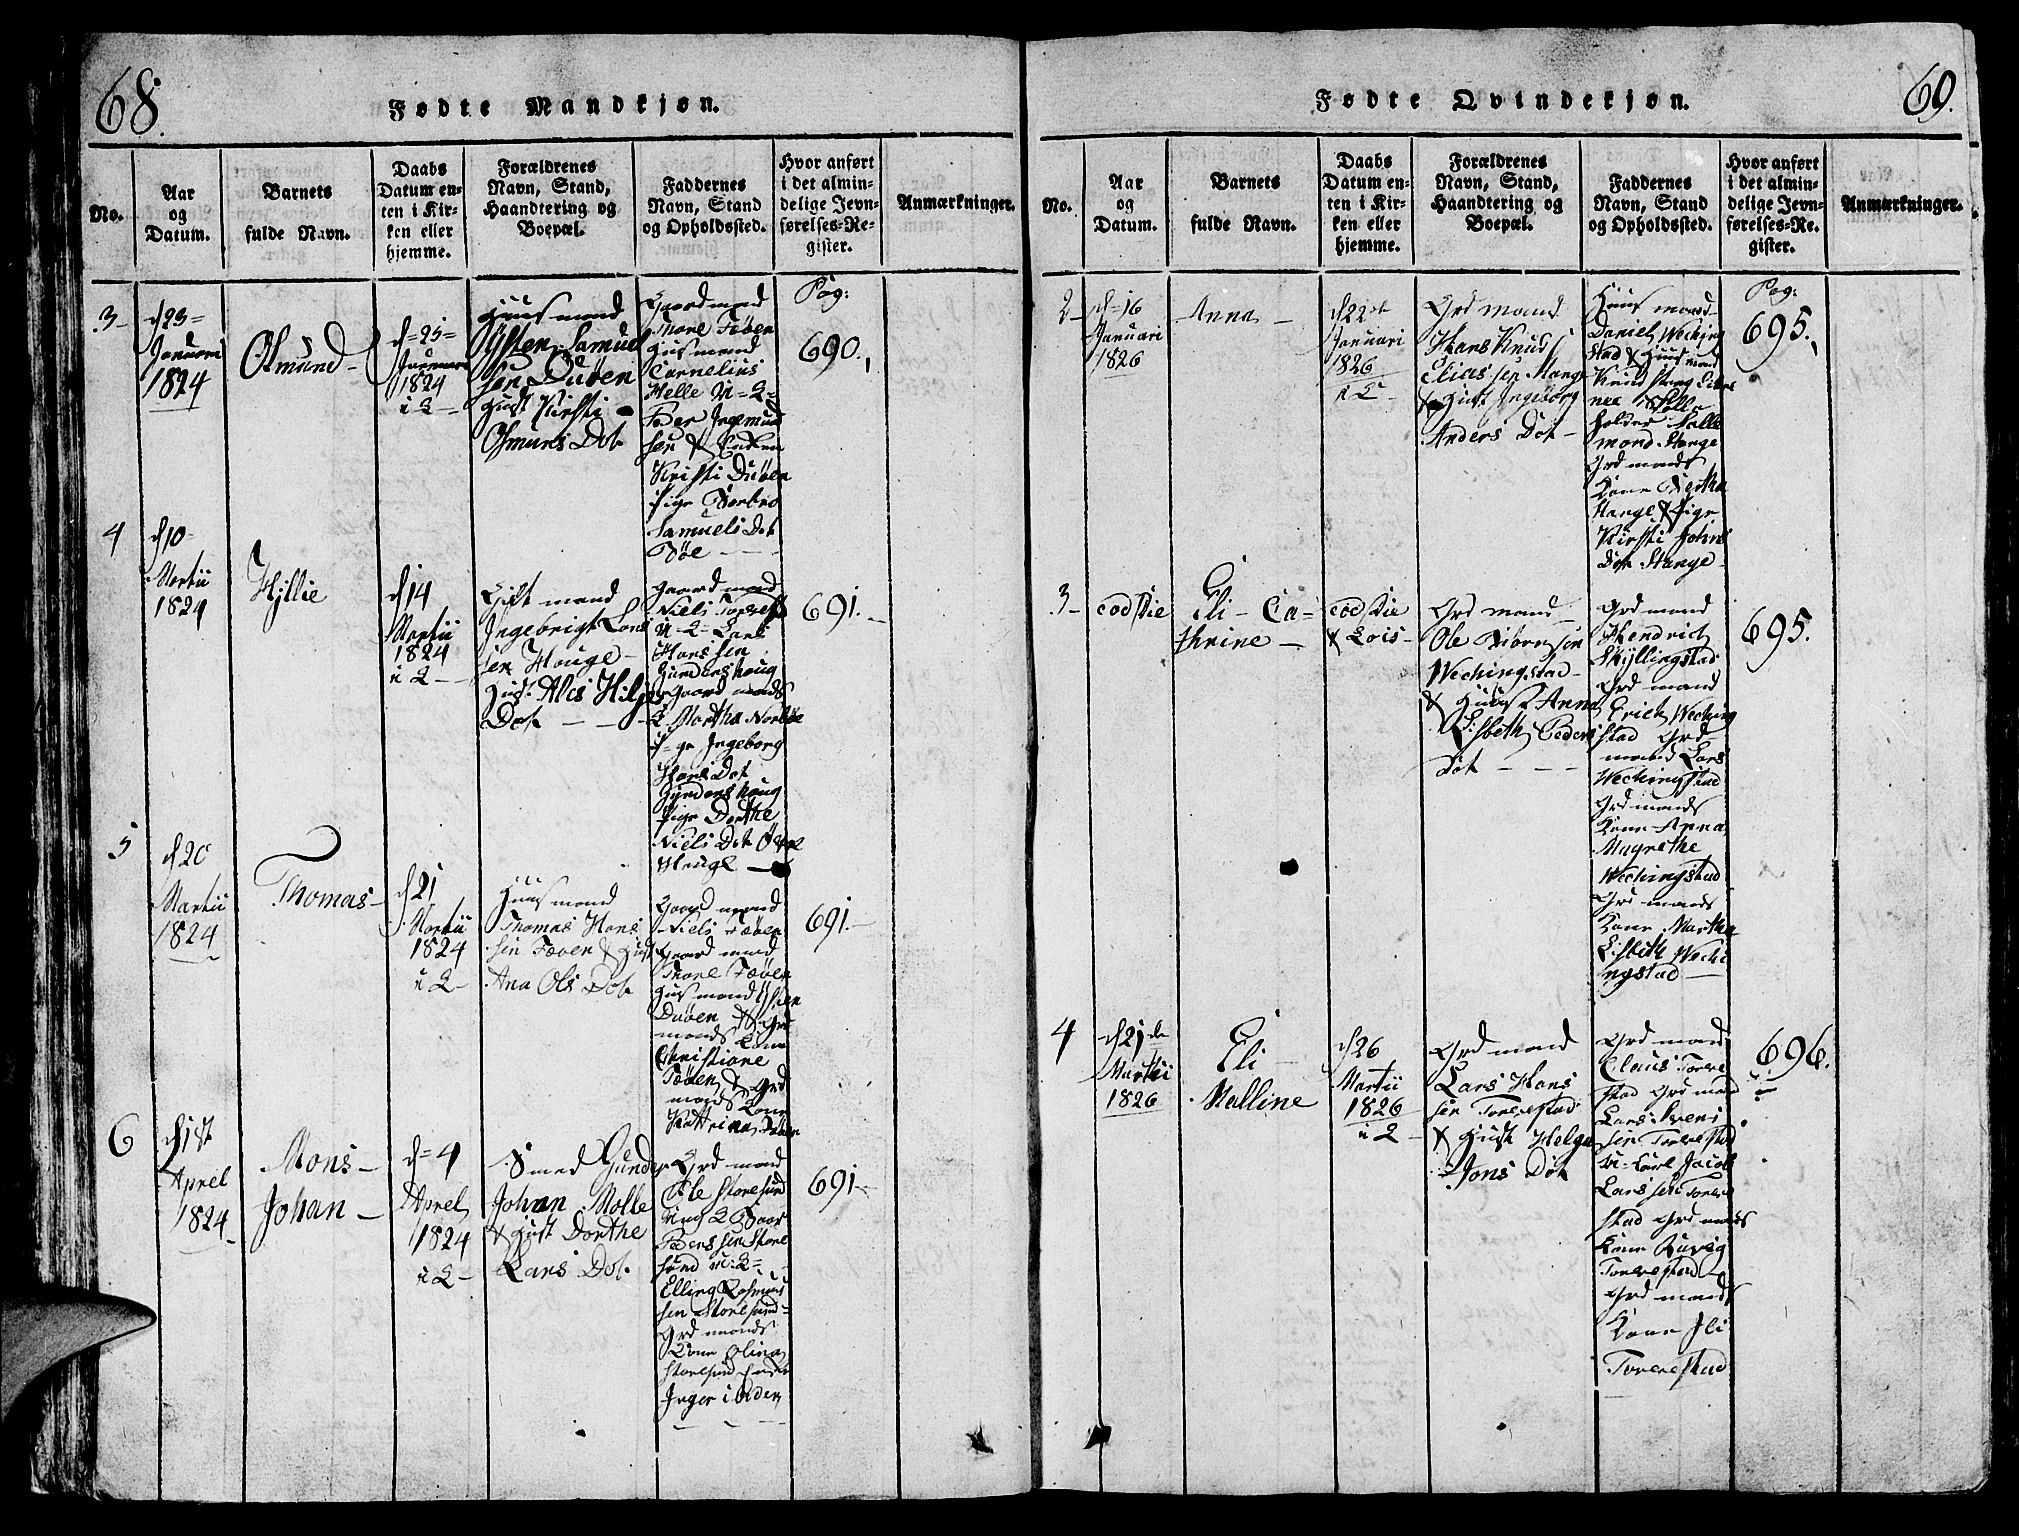 68.
Fødte Mandkjøn.
No.
Aar
og
Datum.
Barnets
fulde Navn.
Daabs
Datum en-
ten i Kir-
ken eller
hjemme.
Forældrenes
Navn, Stand,
Haandtering og
Boepæl.
Faddernes
Navn, Stand
og Opholdssted.
Hvor anført
i det almin-
delige Jevn-
førelses-Re-
gister.
Anmærkninger.
3-
d 23=
Januari
1824
Osmund-
d=25=
Januari
1824
i L-
Huusmand
Østen Samuel
sen Duøen
Hust Kirsti
Osmuns Dot
Gaardmand
Thore Føøen
Husmand
Cornelius
Helle U=L=
Peder Ingemund
sen & Enken
Kirsti Duøen
Pige Torbro
Samuels Dot
Døe
Pag:
690.
4
d 10-
Martii
1824
Hyllie
d 14
Martii
1824
i L-
Gift mand
Ingebrigt Lars
sen Houge-
Hust: Ales Hilje
Dot
Gaardmand
Niels Torrestad
U-L- Lars
Hanssen
Gundershoug
Gaardmands
K Martha Norbøe
Pige Ingeborg
Hans Dot
Gundershoug
Pige Dorthe
Niels Dot
Houge
691.-
5
d 20
Martii
1824
Thomas-
d 21
Martii
1824
i L-
Huusmand
Thomas Hans
sen Føøen & Hust
Ana Ols Dot
Gaardmand
Niels Føøen
Gaardmand
Thore Føøen
Husmand Østen
Duøen & Grd
mands Kone
Christiane
Føøen & Grd
mands Kone
Kattrina Føøen
691.-
6
d 1st
Aprel
1824
Mons-
Johan-
d=4
Aprel
1824
i L-
Smed Gunder
Johan Molle
& Hust Dorthe
Lars Dot
Grd mand
Ole Storesund
Ung L
Peders sen Store
sund U:L=
Elling Rasmus
sen Storesund-
Grd mands
Kone Olina
Storesund
Inger i Viken
691.-
Fødte Qvindekjøn.
69.
No.
Aar
og
Datum.
Barnets
fulde Navn.
Daabs
Datum en-
ten i Kir-
ken eller
hjemme.
Forældrenes
Navn, Stand,
Haandtering og
Boepæl.
Faddernes
Navn, Stand
og Opholdssted.
Hvor anført
i det almin-
delige Jevn-
førelses-Re-
gister.
Anmærkninger.
2-
d=16
Januari
1826
Anna-
d 22de
Januari
1826
i L-
Grd mand
Hans Knud
Elias sen Mange
& Hust Ingeborg
Anders Dot-
Huusmand
Daniel Weching
stad & Huusmand
Knud
mand Hange
Grd mands
Kone Bertha
Hange & Pige
Kirsti Johns
Dot Hange
Pag:
695.
3-
eod Die
Eli-Ca-
thrine-
eod Die
& Lois-
Grd mand
Ole Biørnsen
Wechingstad-
& Huus: Anna
Lisbeth Peders
Dot
Grd mand
Hendrich
Skyllingstad
Grd mand
Erich Weching
stad Grd
mand Lars
Wechingstad
Grd mands
Kone Anna
Magrethe
Wechingstad
Grd mands
Kone Martha
Lisbeth Wechi
ngstad
695.
4
d 21de
Martii
1826
Eli
Malline
d 26
Martii
1826
i L
Grd mand
Lars Hans
sen Torrestad
& Hust Helga
Jons Dot
Grd mand
Claus Torre
stad Grd mand
Lars Svens
sen Torrestad
U-Karl Jacob
Lars sen Torre
stad Grd mands
Kone
Torrestad
Grd mands
Kone Eli
Torrestad
696.